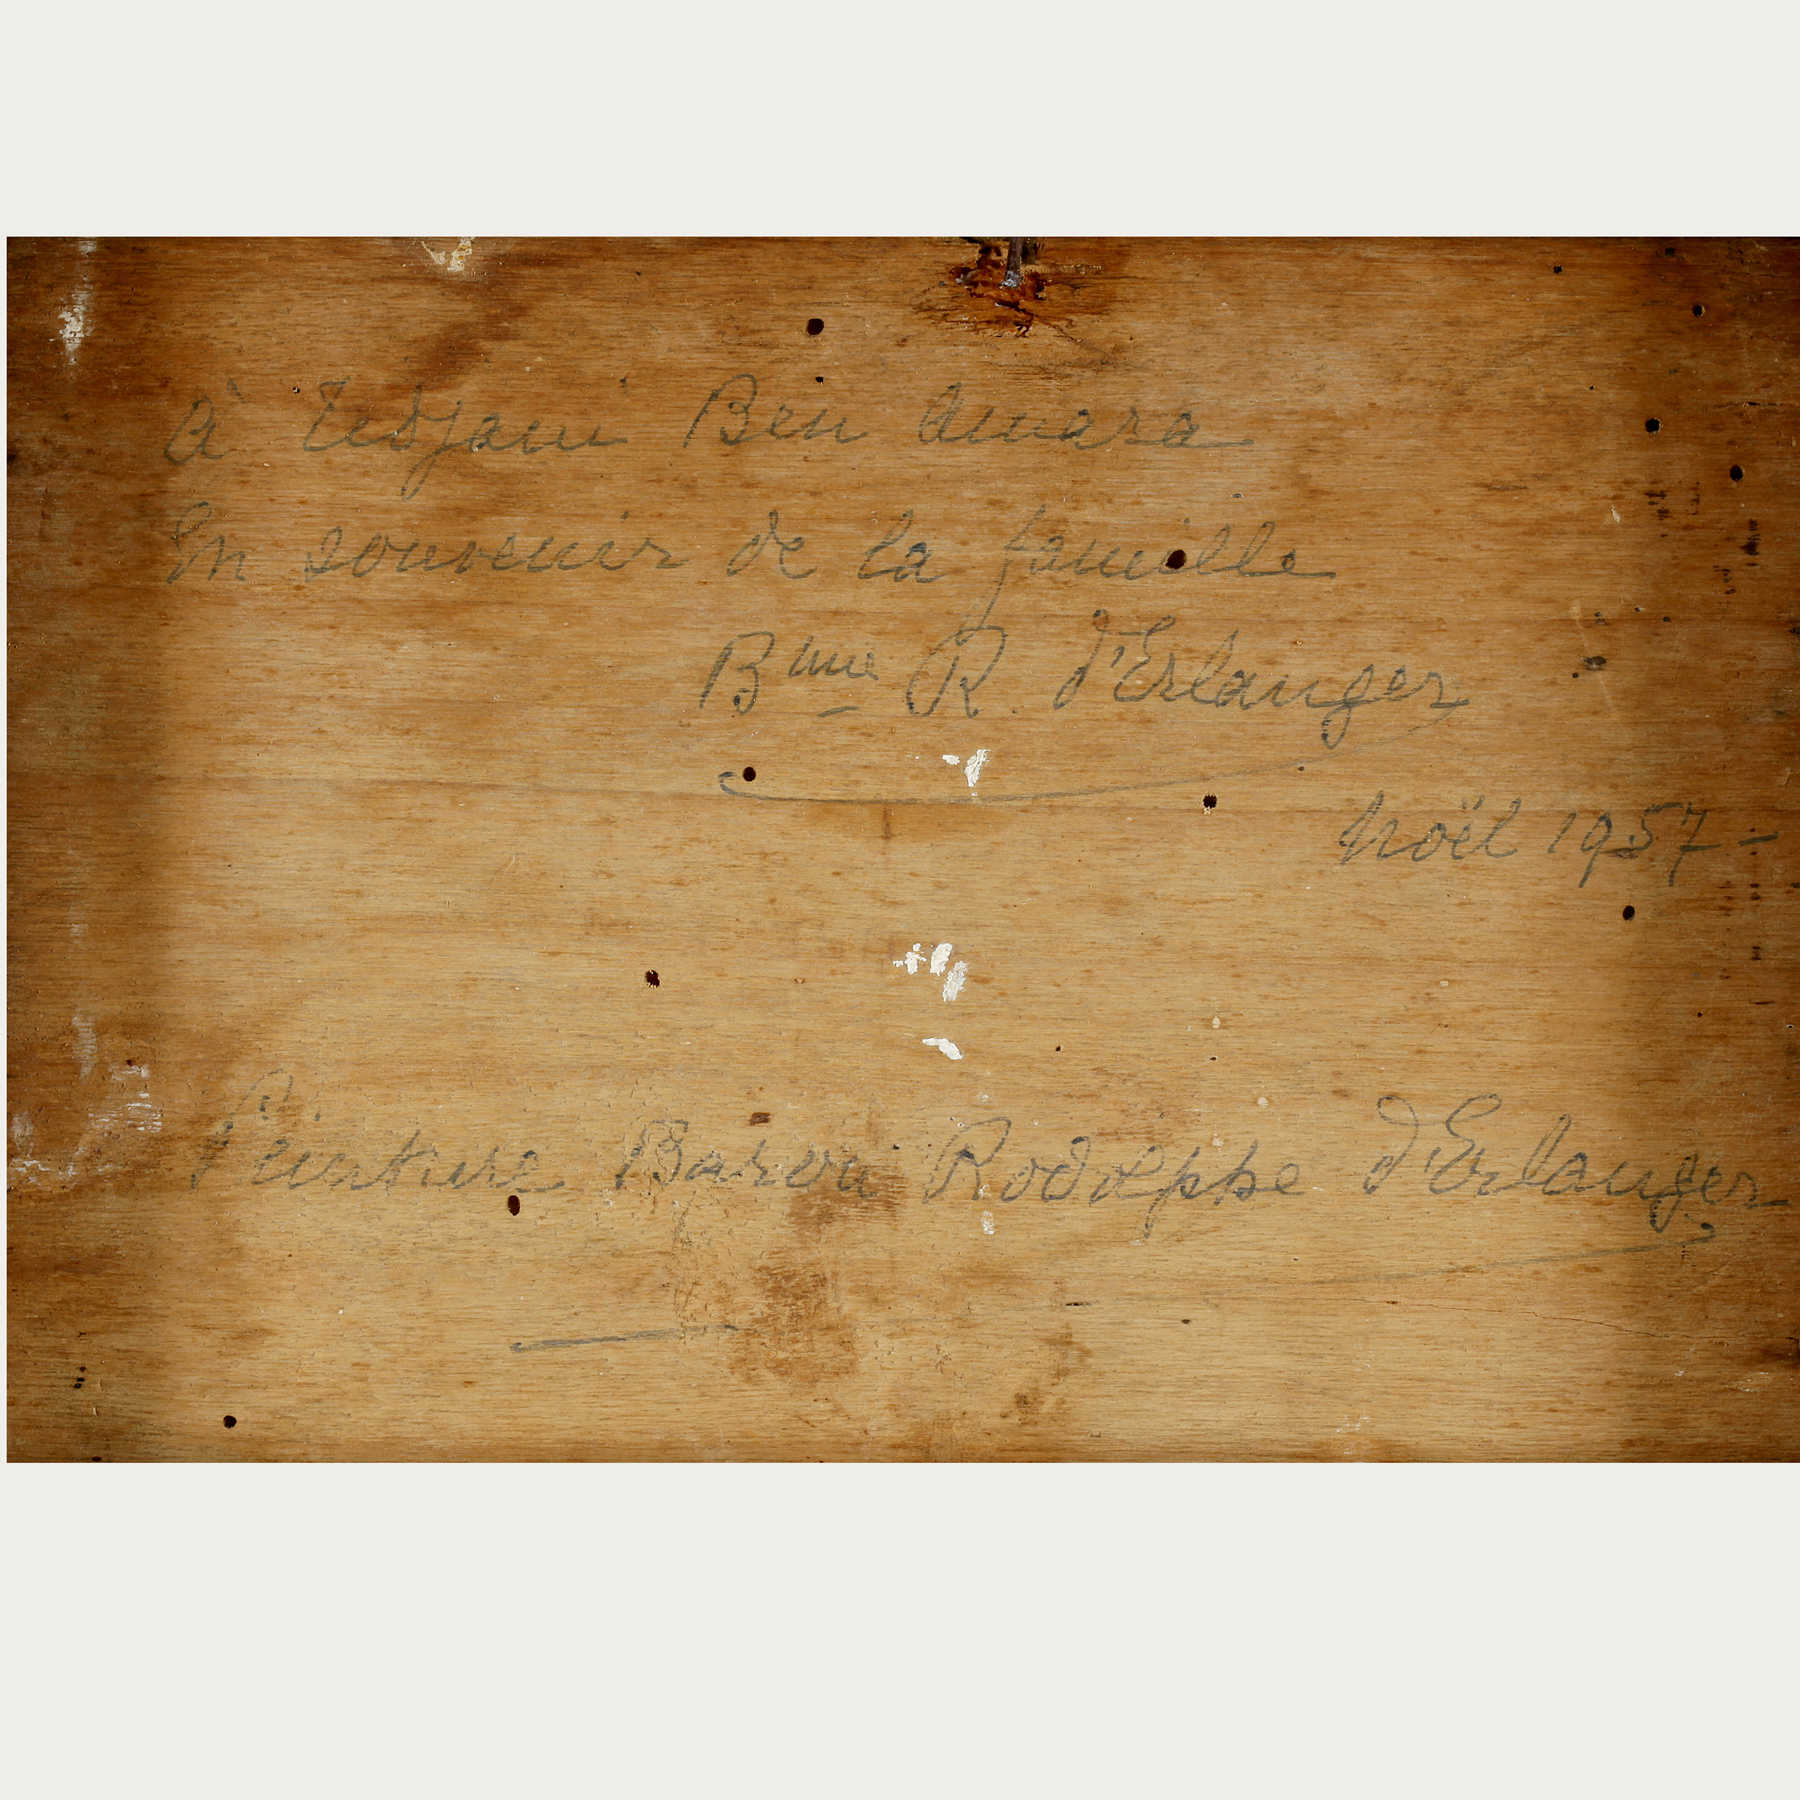 À Tidjani Ben Amara
En souvenir de la famille
Bnne R. d'Erlanger
Noël 1957 -
Peinture Baron Rodolphe d'Erlanger